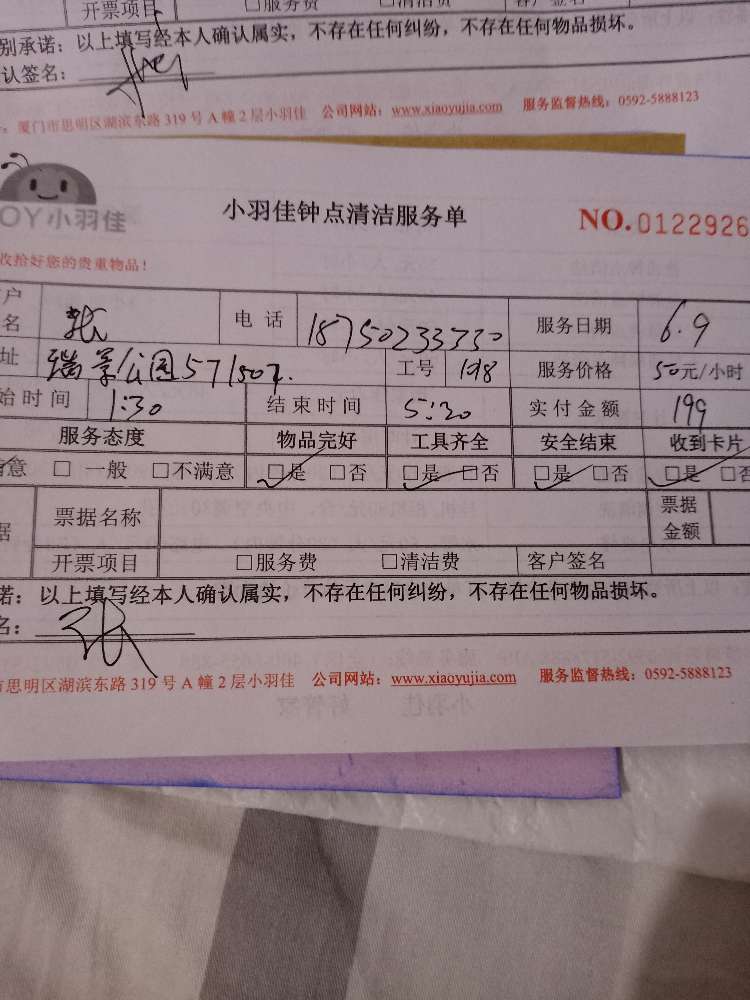 开票项目 □服务费 □清洁费 客户签名
别承诺：以上填写经本人确认属实，不存在任何纠纷，不存在任何物品损坏。
认签名：
厦门市思明区湖滨东路 319 号 A 幢 2 层小羽佳 公司网站：www.xiaoyujia.com 服务监督热线：0592-5888123
OY小羽佳
小羽佳钟点清洁服务单
NO.0122926
收拾好您的贵重物品！
户名 张 电话 18750233330 服务日期 6.9
址 瑞景公园571507 工号 198 服务价格 50元/小时
始时间 1:30 结束时间 5:30 实付金额 199
服务态度 物品完好 工具齐全 安全结束 收到卡片
意 □ 一般 □不满意 □是 □否 □是 □否 □是 □否 □是 □否
据 票据名称 票据金额
开票项目 □服务费 □清洁费 客户签名
诺：以上填写经本人确认属实，不存在任何纠纷，不存在任何物品损坏。
名：张
市思明区湖滨东路 319 号 A 幢 2 层小羽佳 公司网站：www.xiaoyujia.com 服务监督热线：0592-5888123